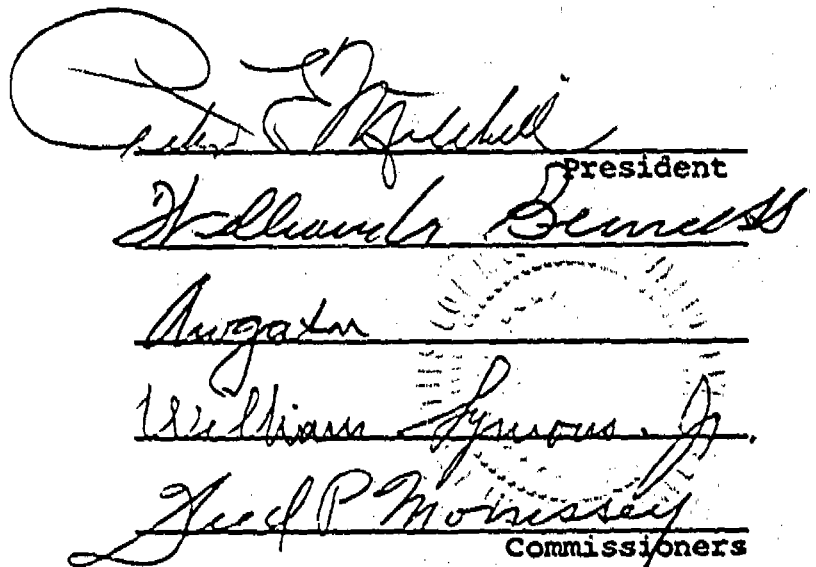 Peter E Mitchell
President
William M Bennett
AWGatov
William Symons, Jr.
Fred P Morrissey
Commissioners